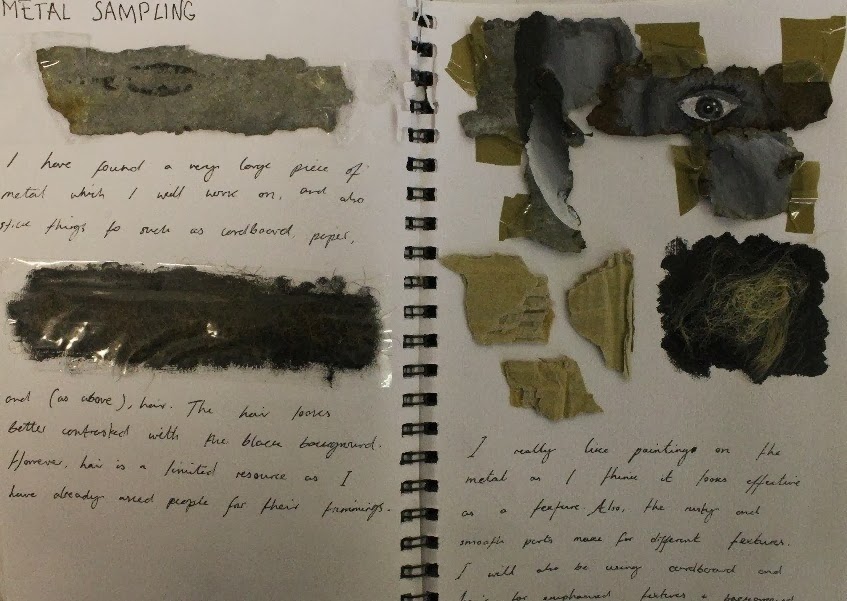 METAL SAMPLING
I have found a very large piece of
metal which I will work on, and also
stick things to such as cardboard, paper,
and (as above), hair. The hair looks
better contrasted with the black background.
However, hair is a limited resource as I
have already asked people for their trimmings.
I really like paintings on the
metal as I think it looks effective
as a texture. Also, the rusty and
smooth parts make for different textures.
I will also be using cardboard and
hair for emphasised textures & background